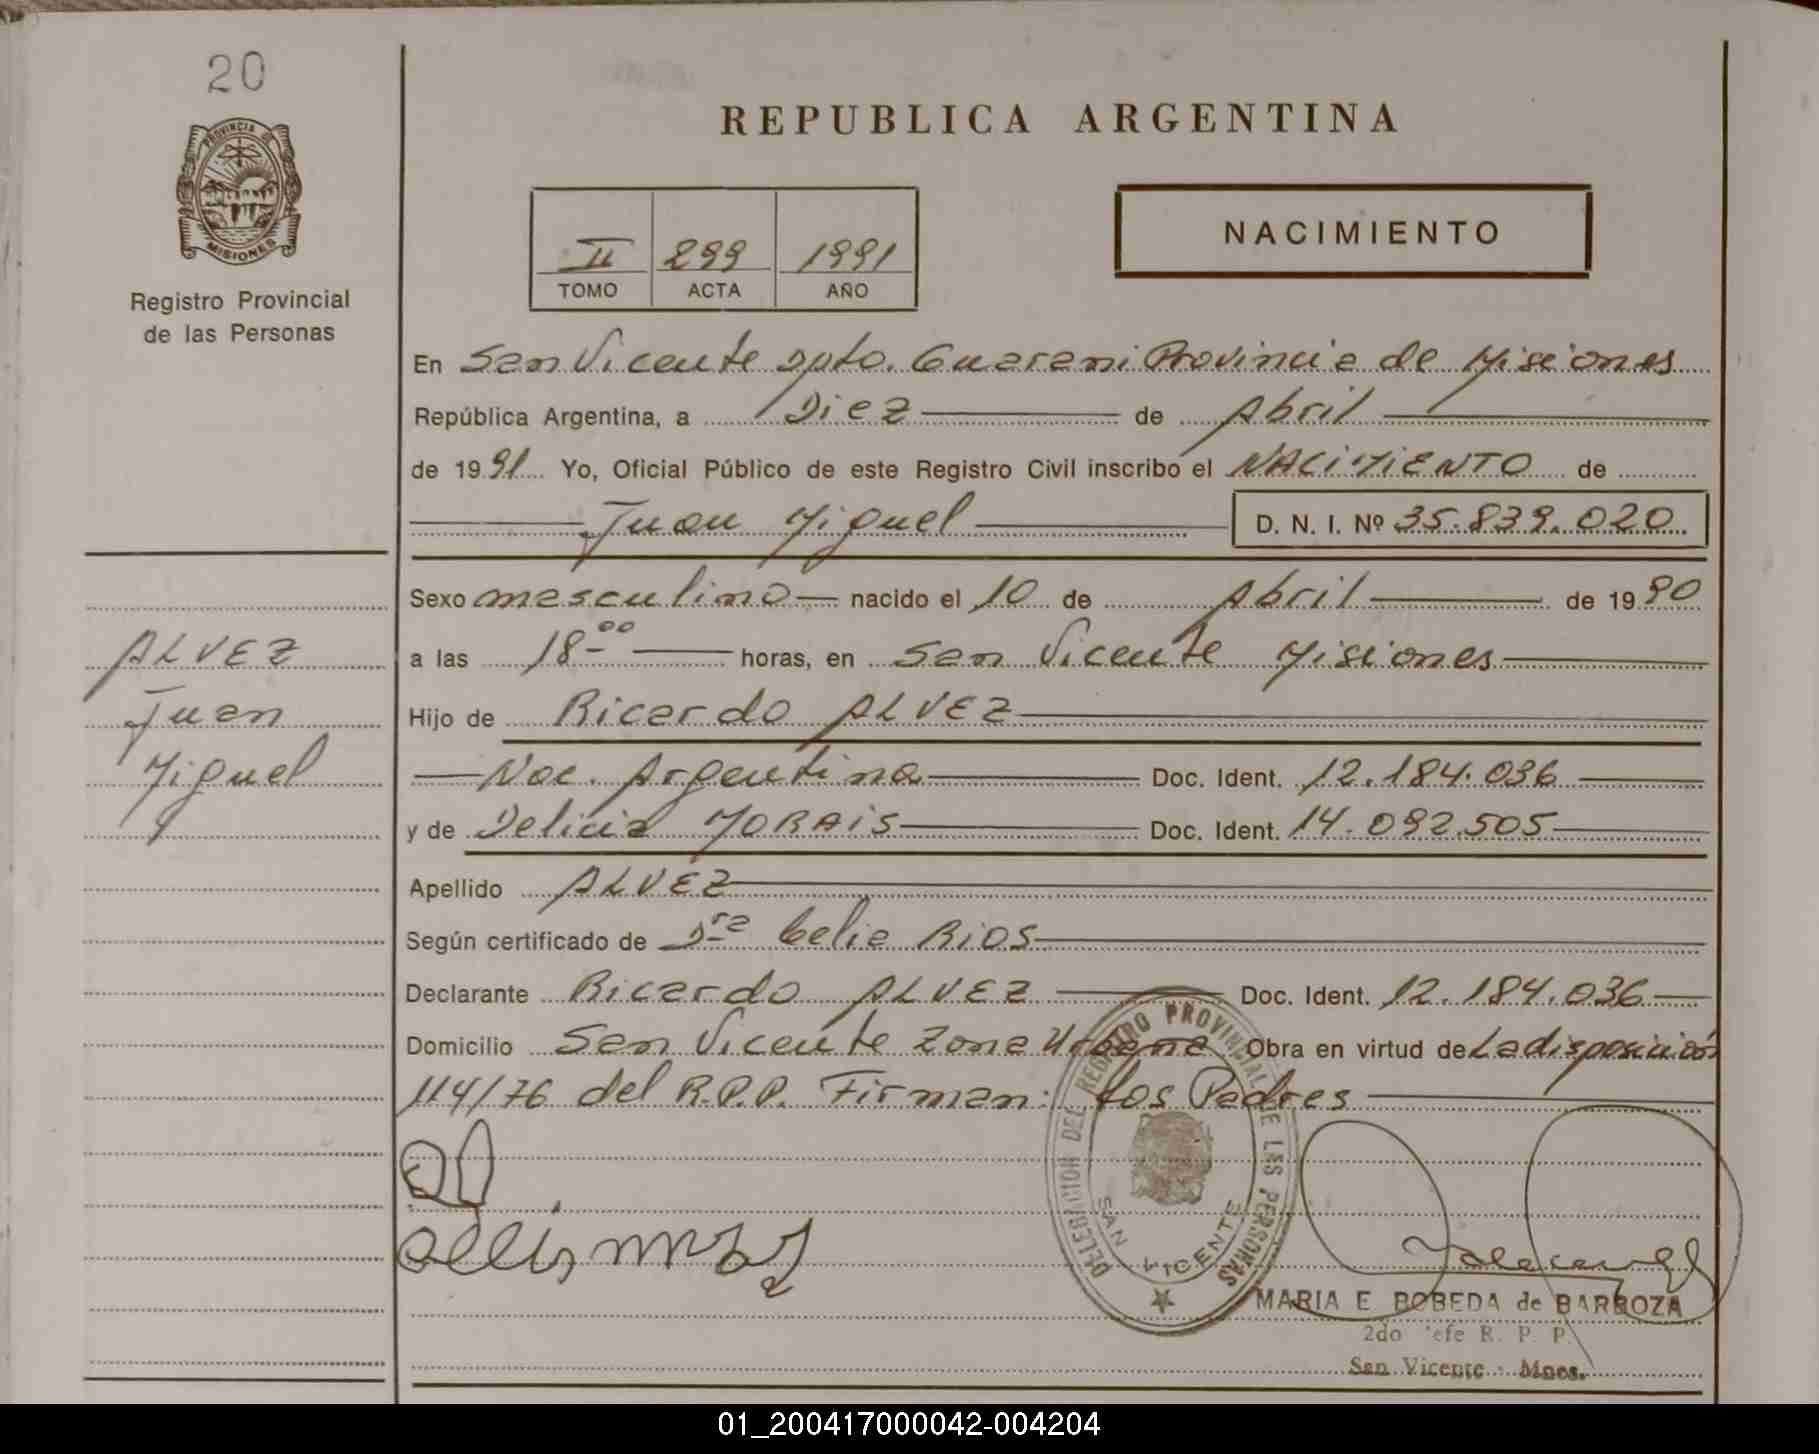 20
PROVINCIA DE
MISIONES
Registro Provincial
de las Personas
REPUBLICA ARGENTINA
II 299 1991
TOMO ACTA AÑO
NACIMIENTO
En San Vicente Dpto. Guarani Provincia de Misiones
República Argentina, a Diez de Abril
de 1991 Yo, Oficial Público de este Registro Civil inscribo el NACIMIENTO de
Juan Miguel D. N. I. Nº 35.839.020
Sexo masculino nacido el 10 de Abril de 1990
a las 18-00 horas, en San Vicente Misiones
Hijo de Ricardo ALVEZ
Nac. Argentina Doc. Ident. 12.184.036
y de Delicia MORAIS Doc. Ident. 14.092.505
Apellido ALVEZ
Según certificado de Dra Celia RIOS
Declarante Ricardo ALVEZ Doc. Ident. 12.184.036
Domicilio San Vicente Zona Urbana Obra en virtud de La disposición
114/76 del R.P.P. Firman: Los Padres
ALVEZ
Juan
Miguel
DELEGACION DEL REGISTRO PROVINCIAL DE LAS PERSONAS
SAN VICENTE
MARIA E BOBEDA de BARBOZA
2do Jefe R. P. P.
San Vicente - Mnes.
01_200417000042-004204